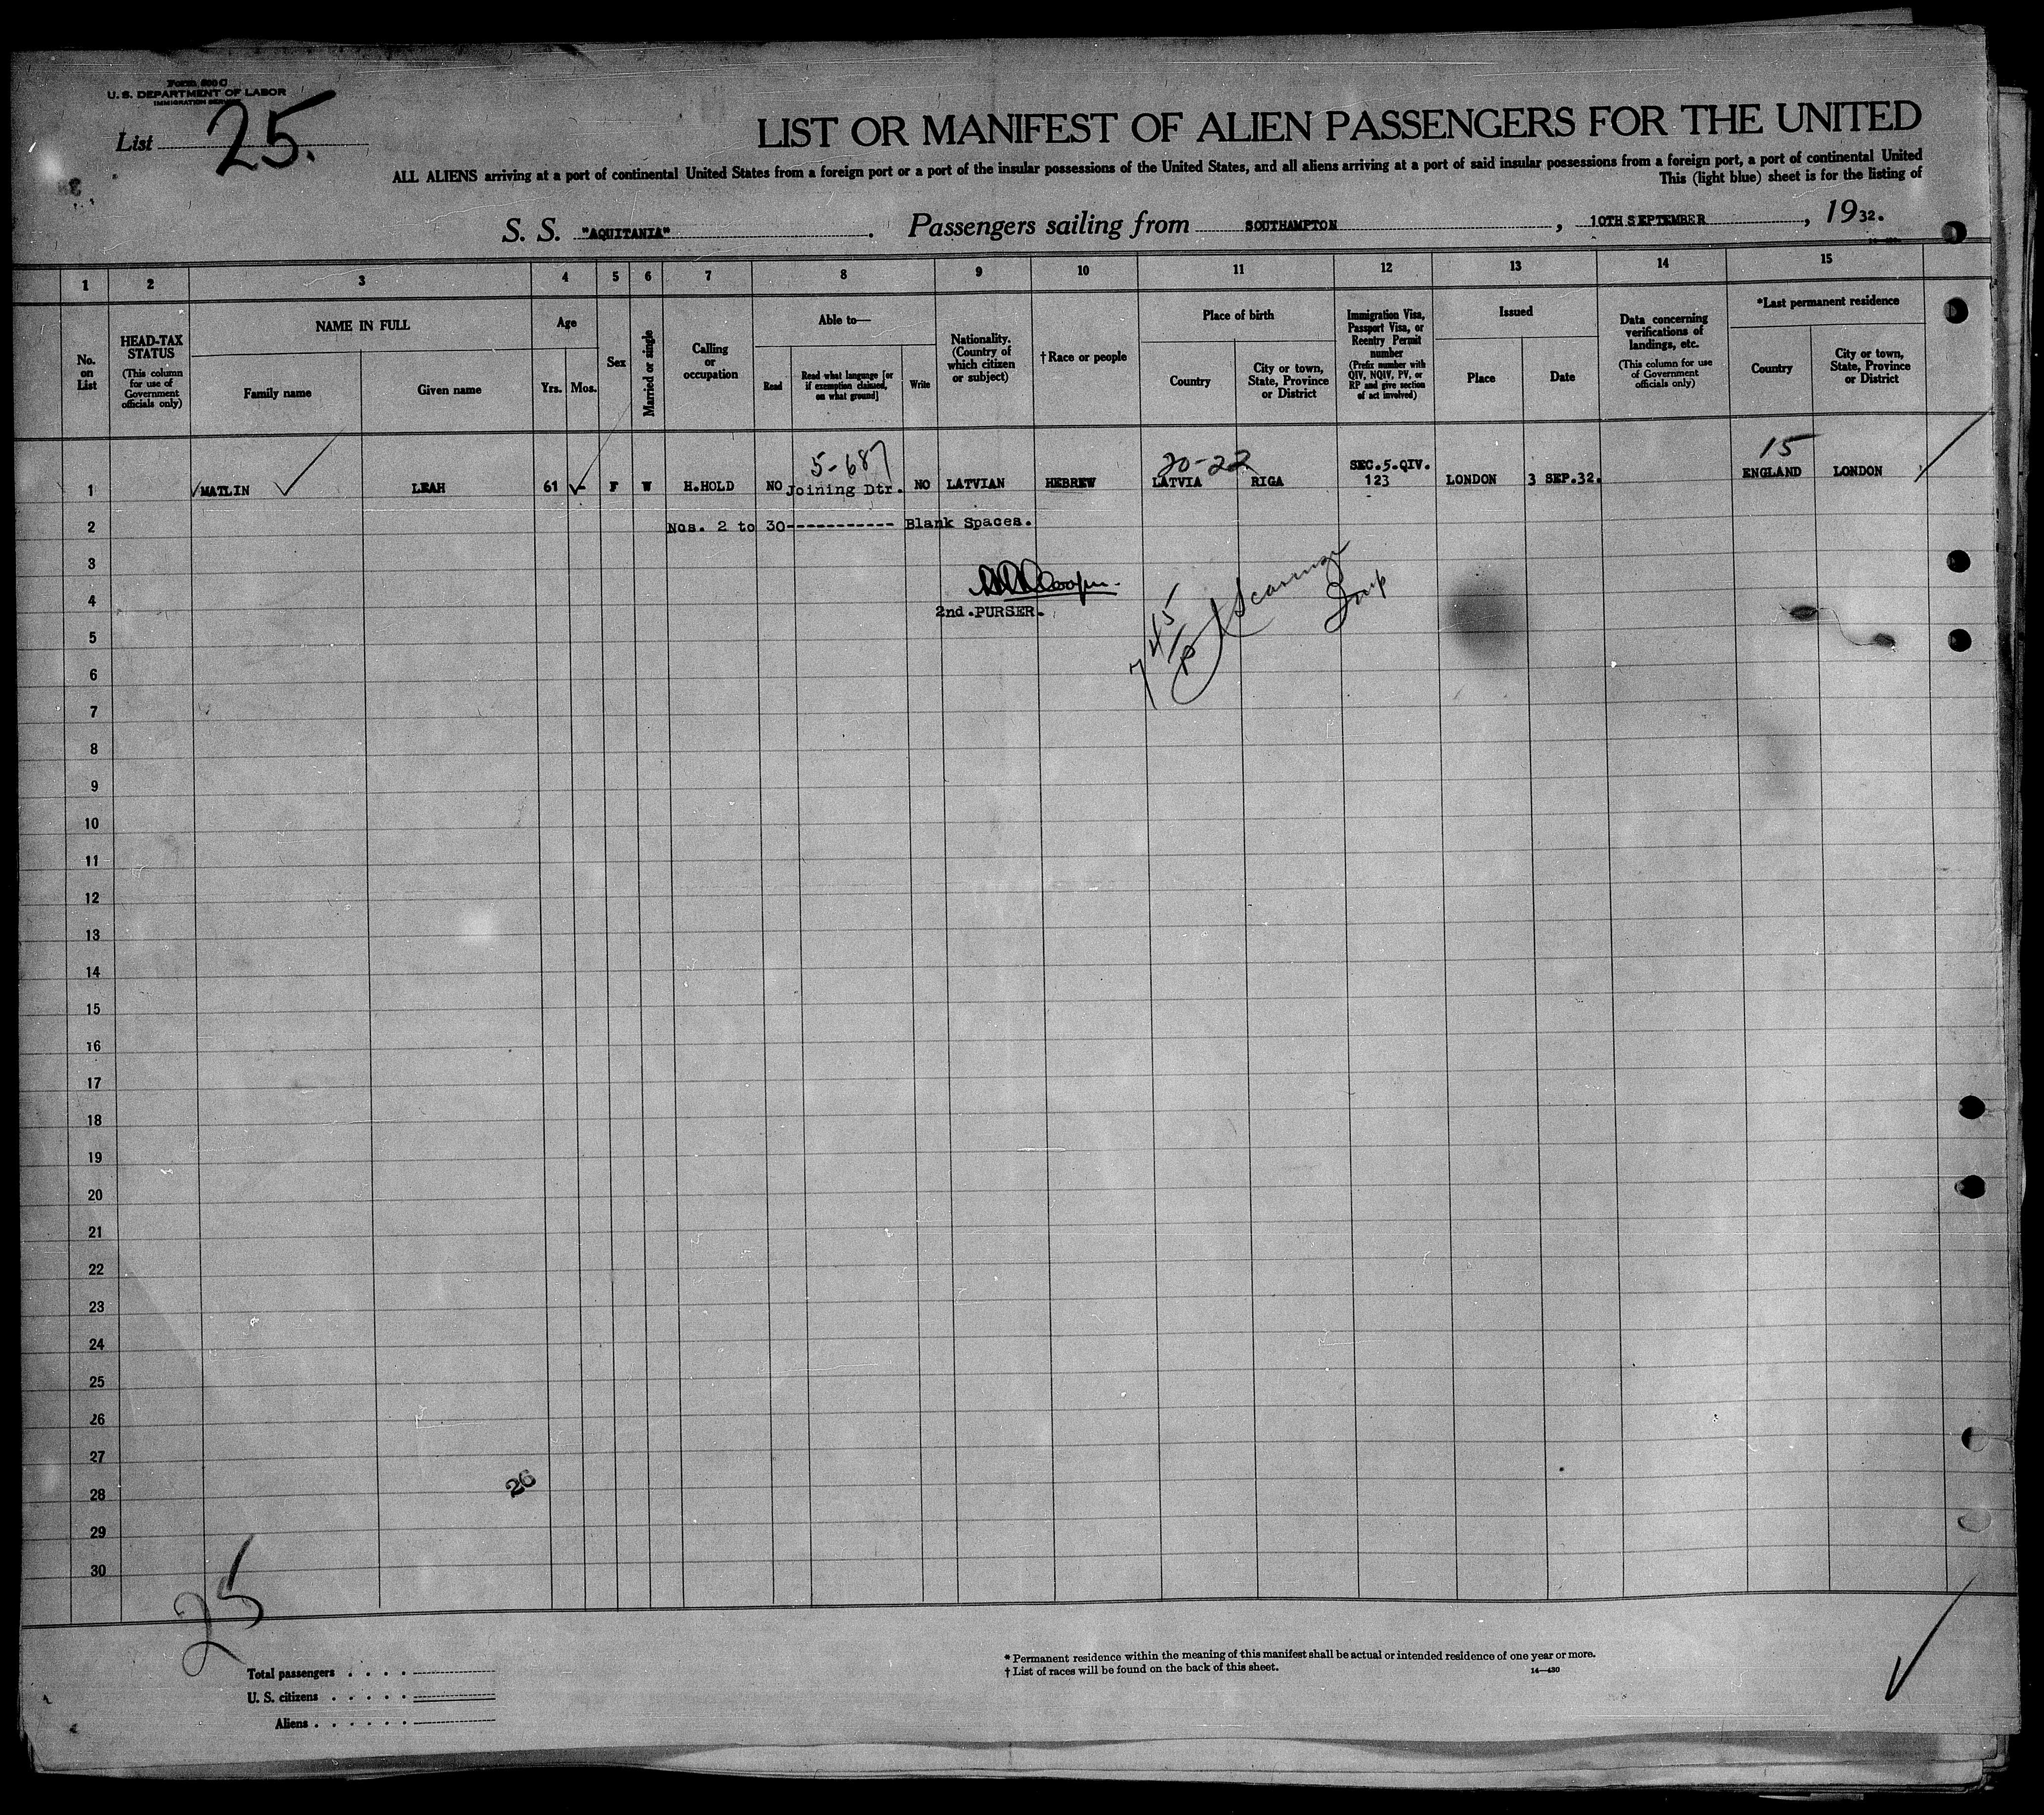 Form 600 C
U. S. DEPARTMENT OF LABOR
IMMIGRATION SERVICE
List 25.
LIST OR MANIFEST OF ALIEN PASSENGERS FOR THE UNITED
ALL ALIENS arriving at a port of continental United States from a foreign port or a port of the insular possessions of the United States, and all aliens arriving at a port of said insular possessions from a foreign port, a port of continental United
This (light blue) sheet is for the listing of
S. S. "AQUITANIA". Passengers sailing from SOUTHAMPTON, 10TH SEPTEMBER, 1932.
1 2 3 4 5 6 7 8 9 10 11 12 13 14 15
No. on List
HEAD-TAX STATUS (This column for use of Government officials only)
NAME IN FULL
Family name
Given name
Age
Yrs. Mos.
Sex
Married or single
Calling or occupation
Able to—
Read
Read what language [or if exemption claimed, on what ground]
Write
Nationality. (Country of which citizen or subject)
† Race or people
Place of birth
Country
City or town, State, Province or District
Immigration Visa, Passport Visa, or Reentry Permit number (Prefix number with QIV, NQIV, PV, or RP and give section of act involved)
Issued
Place
Date
Data concerning verifications of landings, etc. (This column for use of Government officials only)
*Last permanent residence
Country
City or town, State, Province or District
5-687 20-22 SEC.5.QIV. 15
1 MATLIN LEAH 61 - F W H.HOLD NO Joining Dtr. NO LATVIAN HEBREW LATVIA RIGA 123 LONDON 3 SEP.32. ENGLAND LONDON
2 Nos. 2 to 30----------- Blank Spaces.
3
4
2nd.PURSER.
5
6
7
8
9
10
11
12
13
14
15
16
17
18
19
20
21
22
23
24
25
26
27
28
26
29
30
25
Total passengers . . . .
U. S. citizens . . . . .
Aliens . . . . . .
* Permanent residence within the meaning of this manifest shall be actual or intended residence of one year or more.
† List of races will be found on the back of this sheet.
14—430